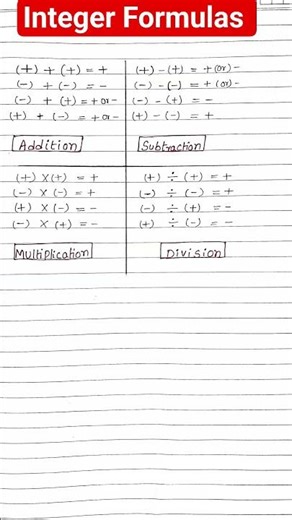 Integer Formulas
(+) + (+) = +
(-) + (-) = -
(-) + (+) = + or -
(+) + (-) = + or -
Addition
(+) - (+) = + (or) -
(-) - (-) = + (or) -
(-) - (+) = -
(+) - (-) = +
Subtraction
(+) X (+) = +
(-) X (-) = +
(+) X (-) = -
(-) X (+) = -
Multiplication
(+) ÷ (+) = +
(-) ÷ (-) = +
(-) ÷ (+) = -
(+) ÷ (-) = -
Division